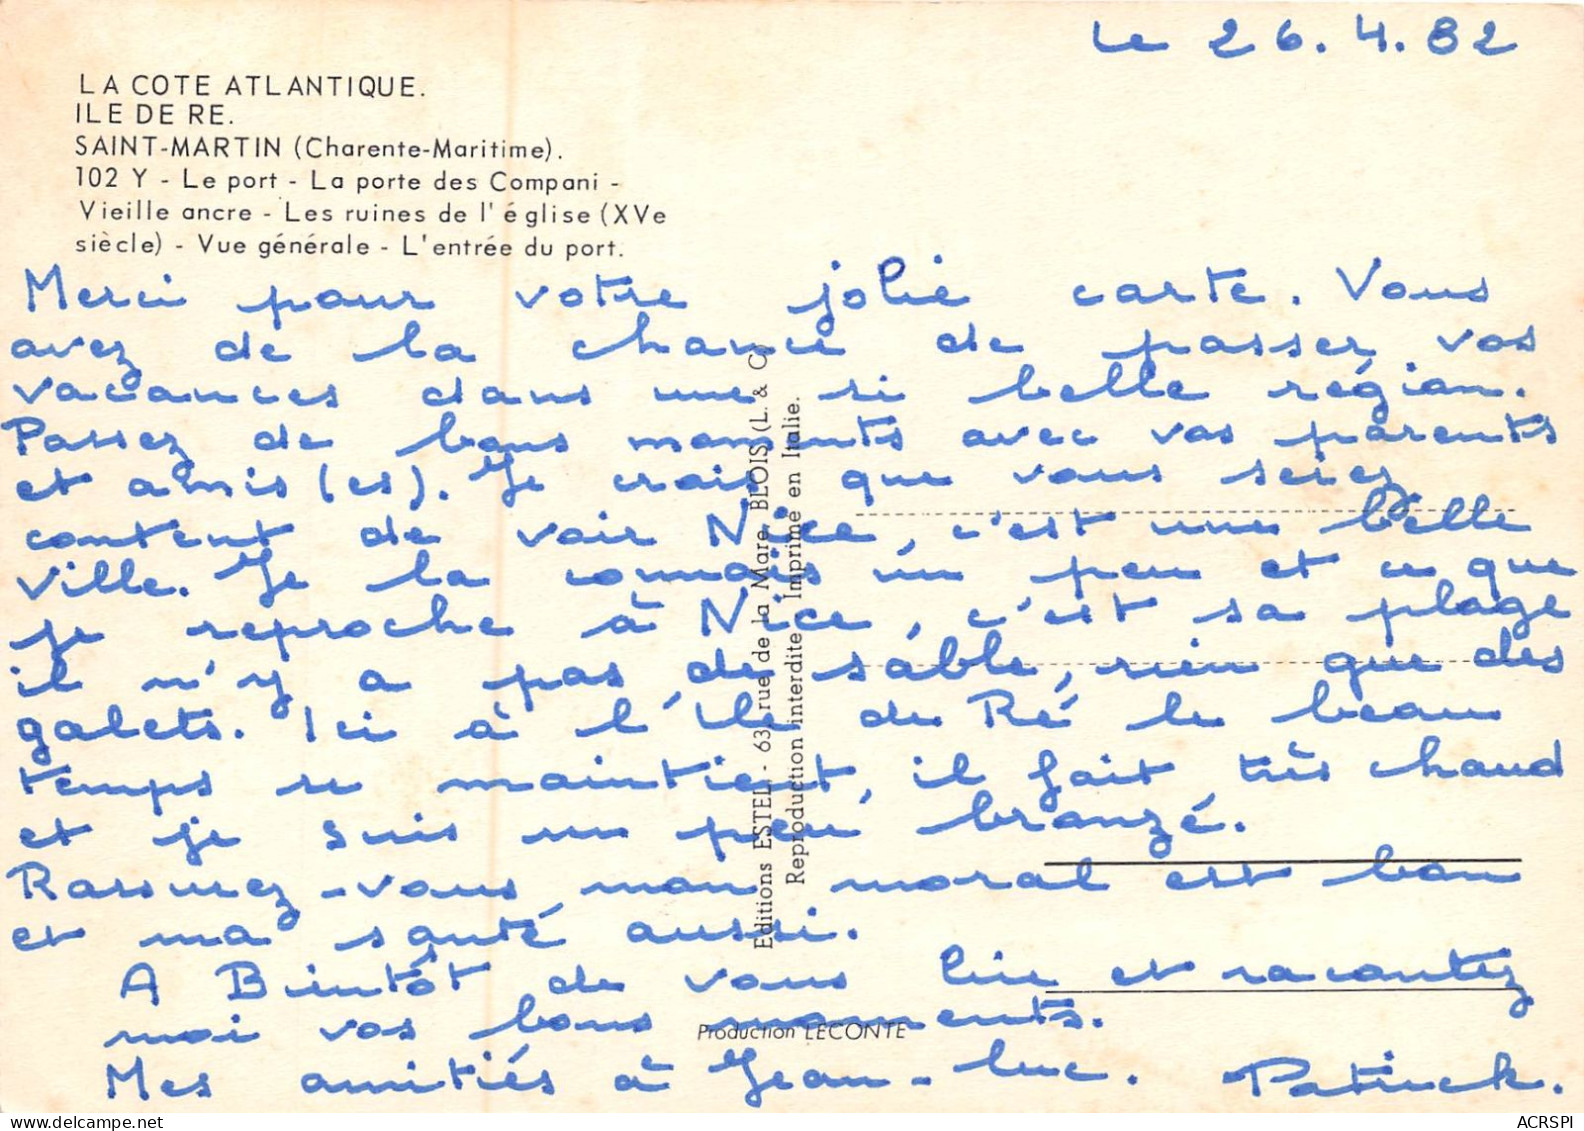 Le 26.4.82
LA COTE ATLANTIQUE.
ILE DE RE.
SAINT-MARTIN (Charente-Maritime).
102 Y - Le port - La porte des Compani -
Vieille ancre - Les ruines de l'église (XVe
siècle) - Vue générale - L'entrée du port.
Merci pour votre jolie carte. Vous
avez de la chance de passer vos
vacances dans une si belle région.
Passez de bons moments avec vos parents
et amis (es). Je crois que vous seiez
content de voir Nice, c'est une belle
ville. Je la connais un peu et ce que
je reproche à Nice, c'est sa plage
il n'y a pas de sable, rien que des
galets. Ici à l'Ile de Ré le beau
temps se maintient, il fait très chaud
et je suis un peu bronzé.
Rassurez-vous mon moral est bon
et ma santé aussi.
A Bientôt de vous lire et racontez
moi vos bons moments.
Mes amitiés à Jean-luc. Patrick.
Editions ESTEL - 63, rue de la Mare, BLOIS (L. & C)
Reproduction interdite Imprimé en Italie.
Production LECONTE
ACRSPI